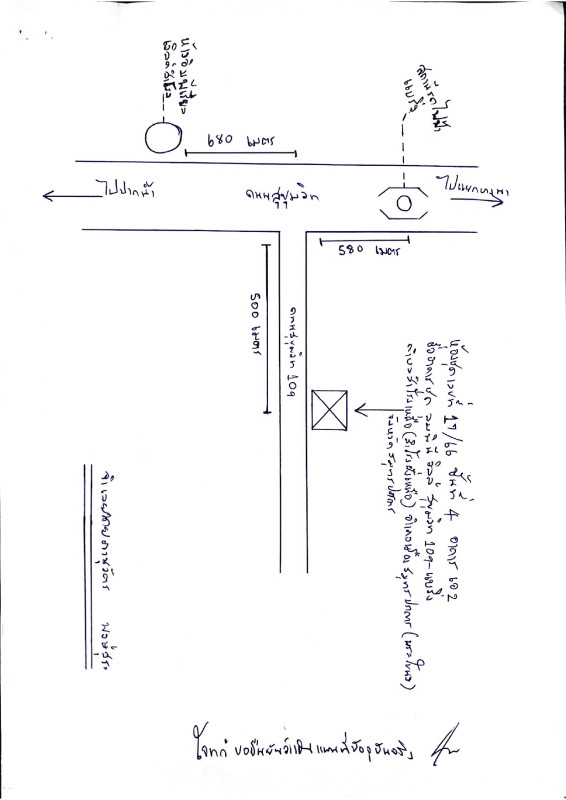 680 เมตร
ไปปากน้ำ
ถนนสุขุมวิท
ไปแยกบางนา
สถานีรถไฟฟ้า
แบริ่ง
580 เมตร
500 เมตร
ถนนสุขุมวิท 109
ห้องชุดเลขที่ 17/66 ชั้นที่ 4 อาคาร เอ2
ชื่ออาคารชุด ลุมพินี วิลล์ สุขุมวิท 109-แบริ่ง
ตำบลสำโรงเหนือ (สำโรงฝั่งเหนือ) อำเภอเมืองสมุทรปราการ (พระโขนง)
จังหวัดสมุทรปราการ
โจทก์ ขอยืนยันว่าเป็นแผนที่